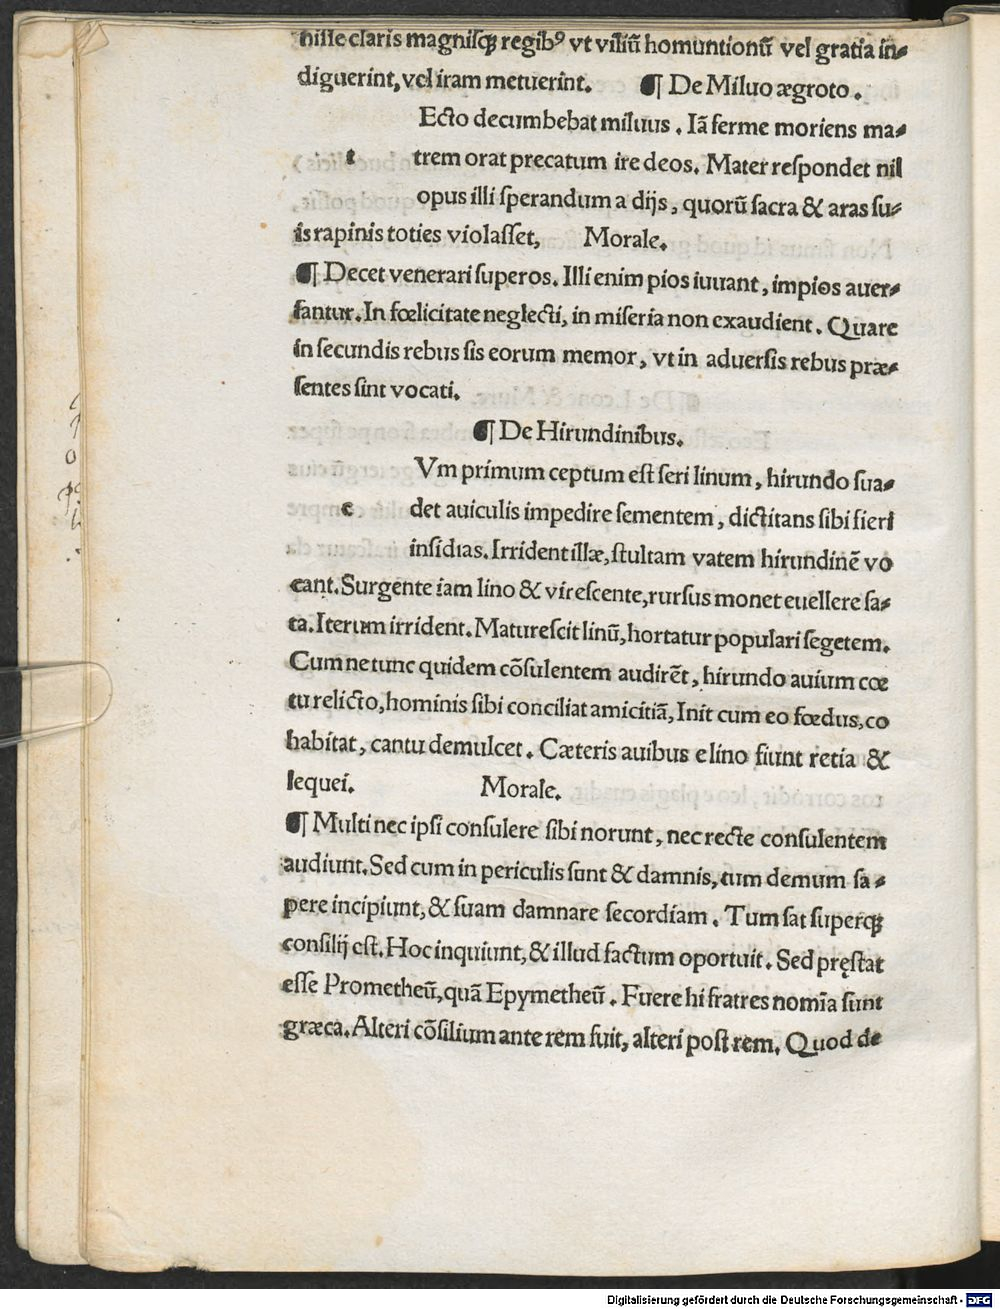 nisse claris magnisqꝫ regibꝰ vt viliũ homuntionũ vel gratia in⸗
diguerint, vel iram metuerint. ¶ De Miluo ægroto.
Ecto decumbebat miluus. Iã ferme moriens ma⸗
t trem orat precatum ire deos. Mater respondet nil
opus illi sperandum a dijs, quorũ sacra & aras su⸗
is rapinis toties violasset, Morale.
¶ Decet venerari superos. Illi enim pios iuuant, impios auer⸗
santur. In fœlicitate neglecti, in miseria non exaudient. Quare
in secundis rebus sis eorum memor, vt in aduersis rebus præ⸗
sentes sint vocati.
¶ De Hirundinibus.
Vm primum ceptum est seri linum, hirundo sua⸗
c det auiculis impedire sementem, dictitans sibi fieri
insidias. Irrident illæ, stultam vatem hirundinẽ vo
cant. Surgente iam lino & virescente, rursus monet euellere sa⸗
ta. Iterum irrident. Maturescit linũ, hortatur populari segetem.
Cum ne tunc quidem cõsulentem audirẽt, hirundo auium cœ
tu relicto, hominis sibi conciliat amicitiã, Init cum eo fœdus, co
habitat, cantu demulcet. Cæteris auibus e lino fiunt retia &
lequei. Morale.
¶ Multi nec ipsi consulere sibi norunt, nec recte consulentem
audiunt. Sed cum in periculis sunt & damnis, tum demum sa⸗
pere incipiunt, & suam damnare secordiam. Tum sat superqꝫ
consilij est. Hoc inquiunt, & illud factum oportuit. Sed pręstat
esse Prometheũ, quã Epymetheũ. Fuere hi fratres nomĩa sunt
græca. Alteri cõsilium ante rem fuit, alteri post rem. Quod de
Digitalisierung gefördert durch die Deutsche Forschungsgemeinschaft - DFG